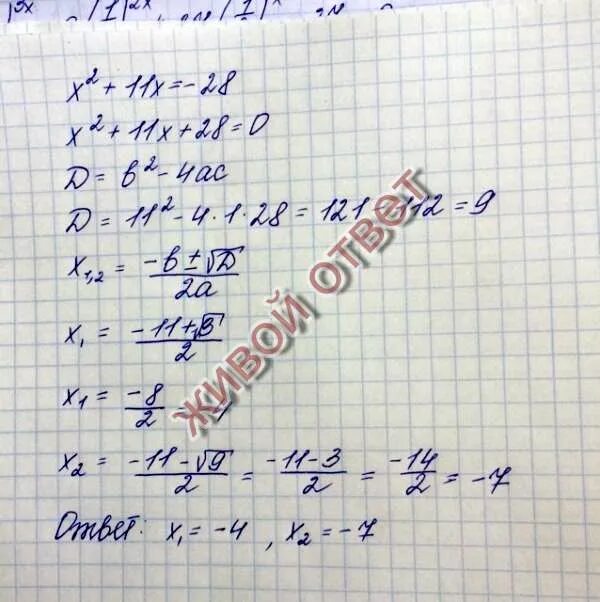 x² + 11x = -28
x² + 11x + 28 = 0
D = b² - 4ac
D = 11² - 4 · 1 · 28 = 121 - 112 = 9
x₁,₂ = (-b ± √D) / 2a
x₁ = (-11 + √3) / 2
x₁ = -8 / 2 = -4
x₂ = (-11 - √9) / 2 = (-11 - 3) / 2 = -14 / 2 = -7
Ответ: x₁ = -4, x₂ = -7
ЖИВОЙ ОТВЕТ